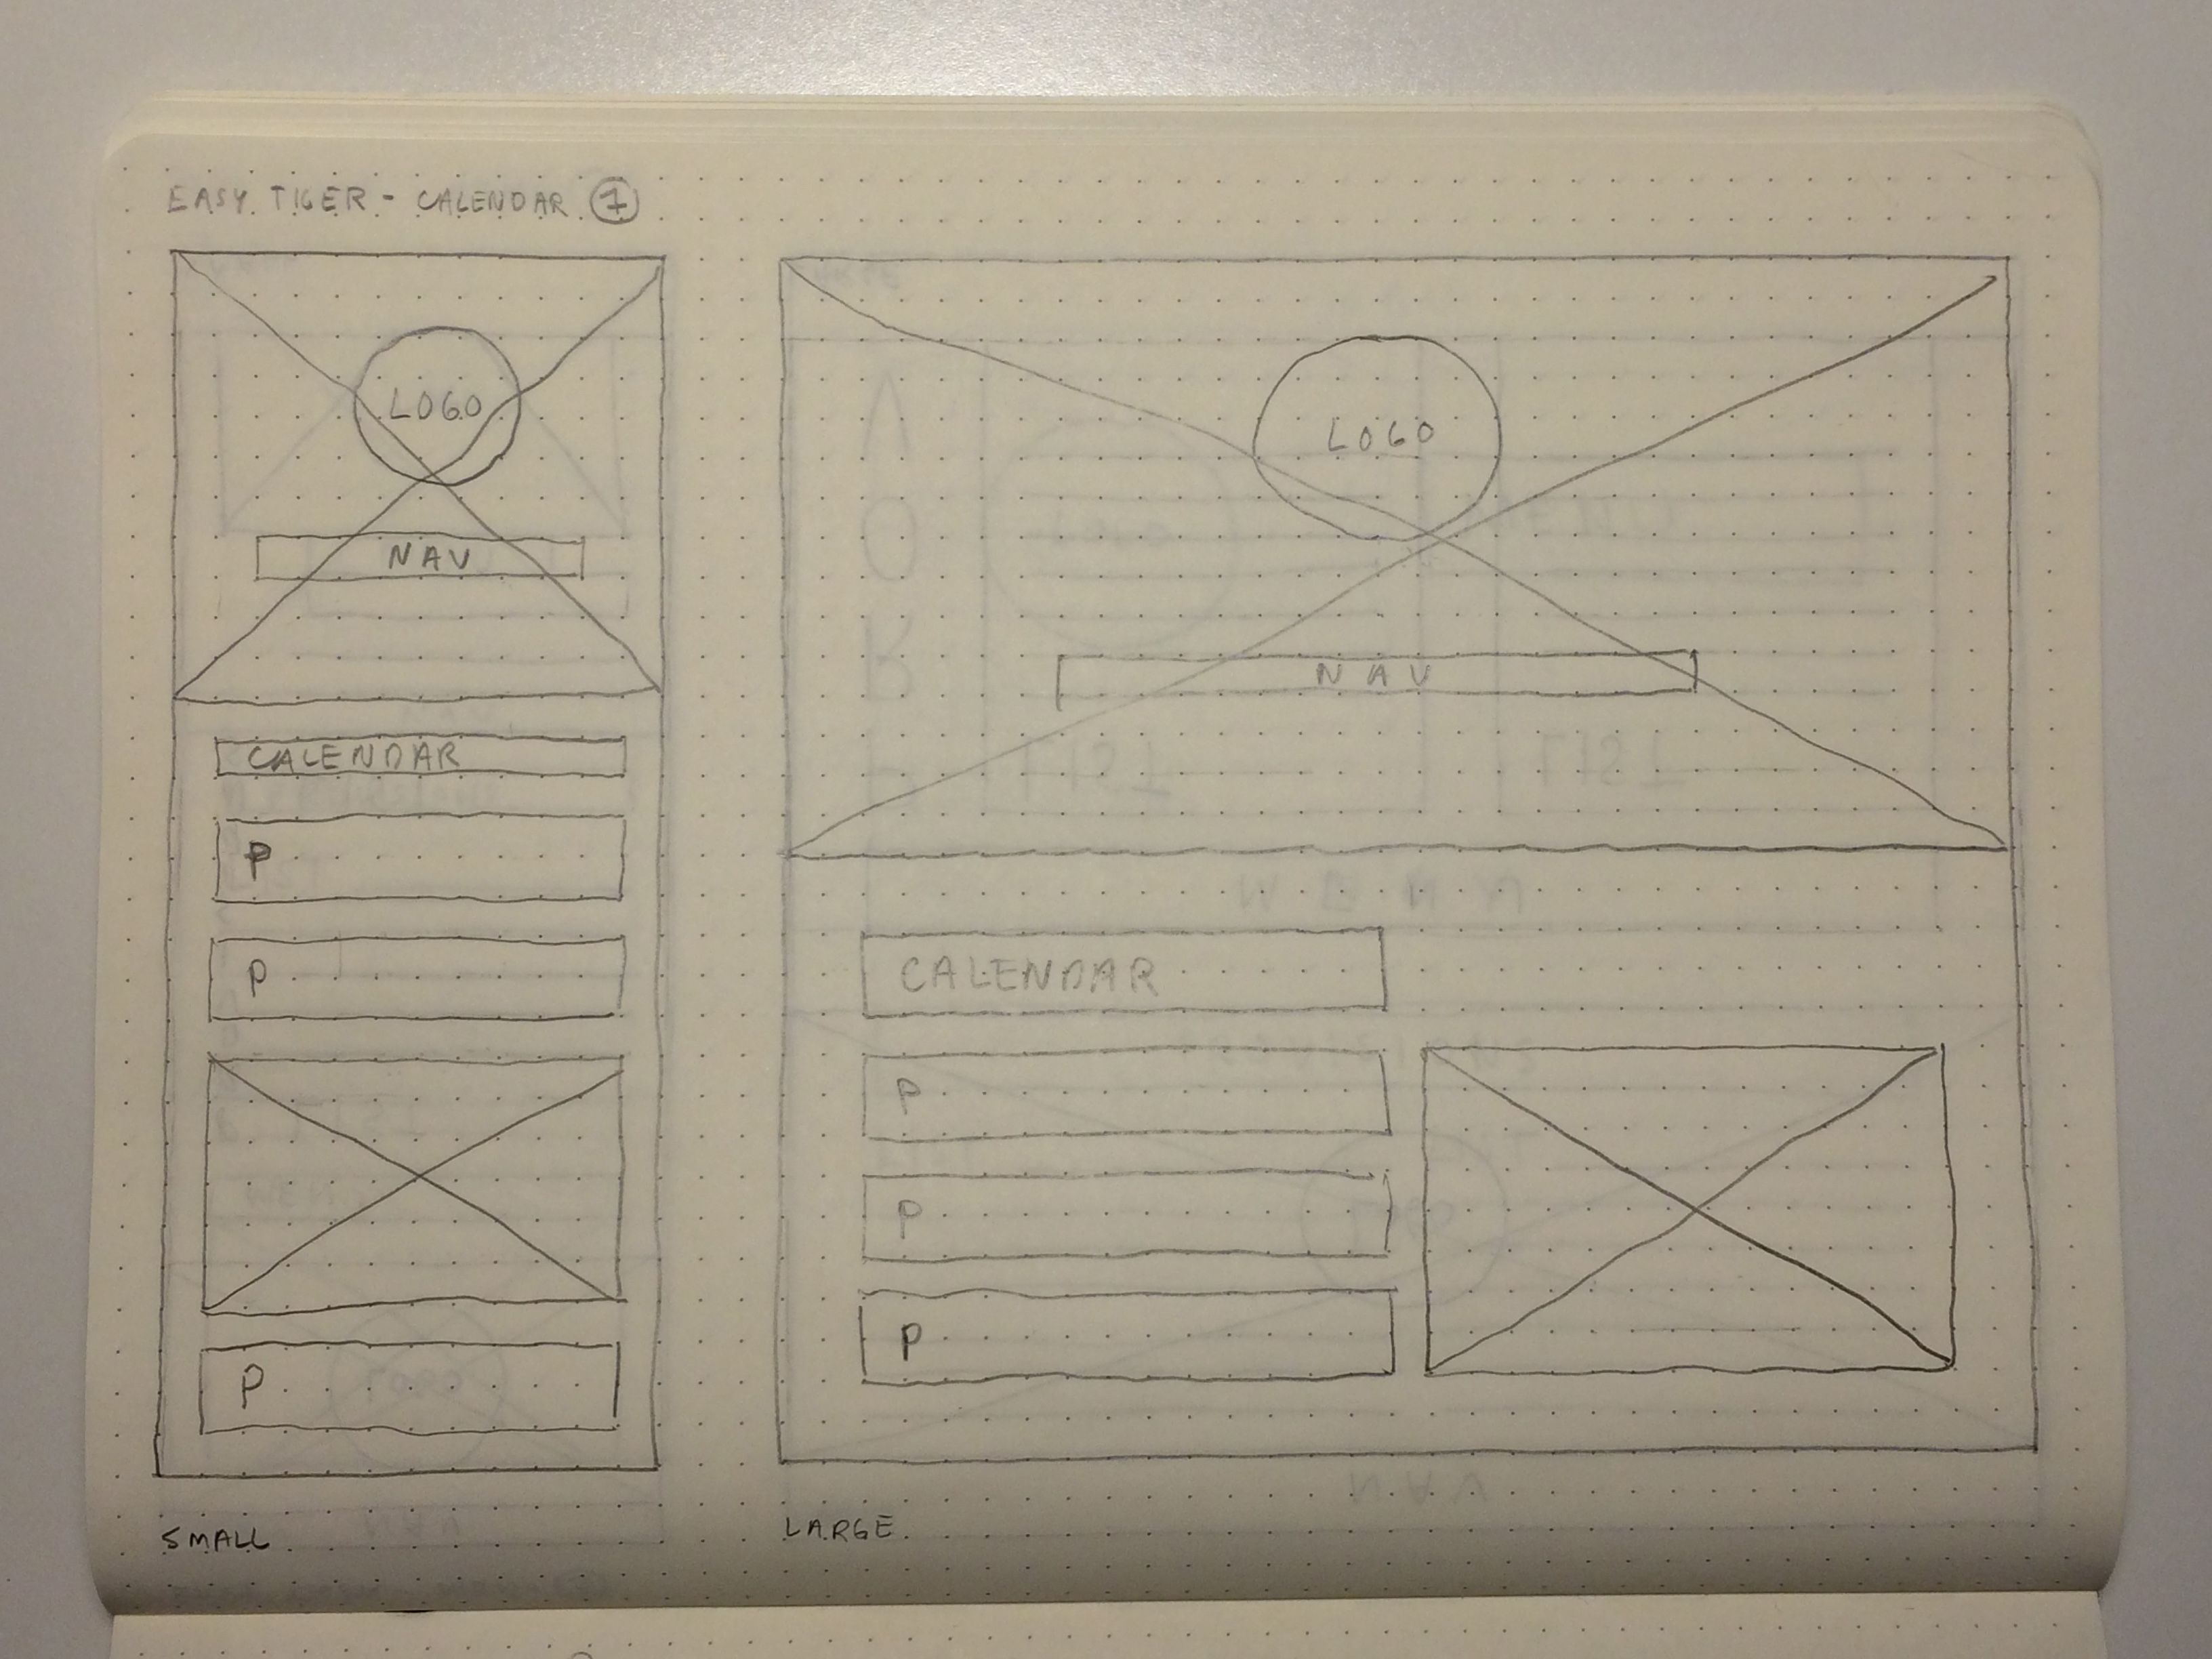 EASY TIGER - CALENDAR 7
LOGO
NAV
CALENDAR
P
P
P
SMALL
LOGO
NAV
CALENDAR
P
P
P
LARGE